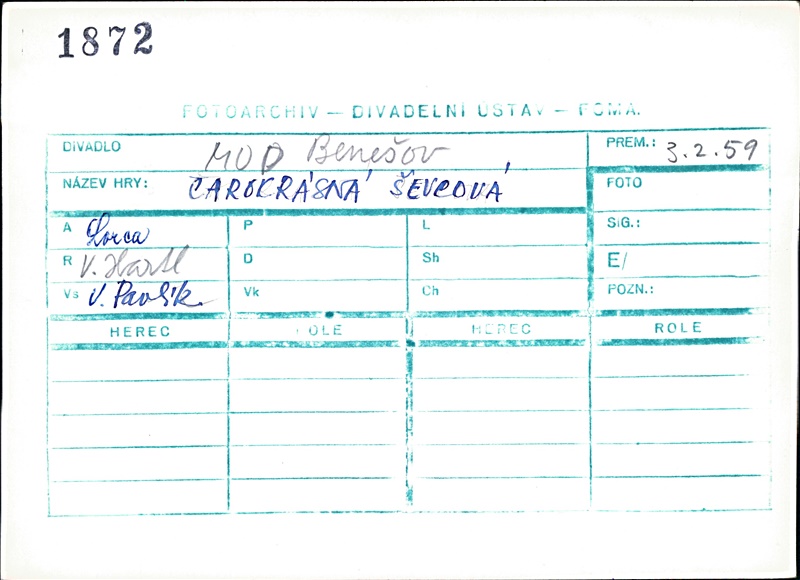 1872
FOTOARCHIV — DIVADELNÍ ÚSTAV — FOMA.
DIVADLO MOD Benešov PREM.: 3.2.59
NÁZEV HRY: ČAROKRÁSNÁ ŠEVCOVÁ FOTO
A Lorca P L SIG.:
R V. Hartl D Sh E/
Vs V. Pavlík Vk Ch POZN.:
HEREC ROLE HEREC ROLE